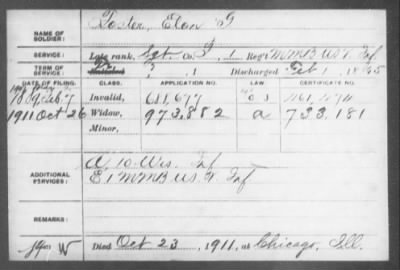 NAME OF SOLDIER: Foster, Elon G
SERVICE: Late rank, Sgt. Co. F, 1 Reg't M M B US V Inf
TERM OF SERVICE: , 1 Discharged Feb 1, 1865
DATE OF FILING. CLASS. APPLICATION NO. LAW CERTIFICATE NO.
Feb 7 Invalid, 611,677
1911 Oct 26 Widow, 973,882 a 733,181
Minor,
ADDITIONAL SERVICES: A 10 Wis. Inf
E 1 M M B US V Inf
REMARKS:
W Died Oct 23, 1911, at Chicago, Ill.